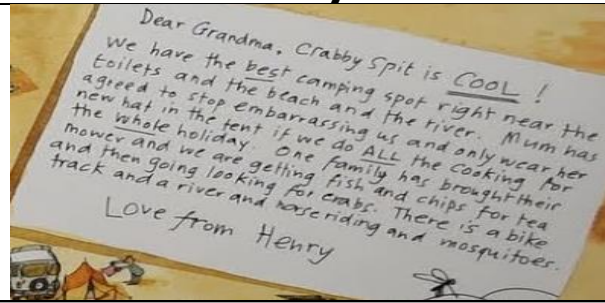 Dear Grandma, Crabby Spit is COOL !
We have the best camping spot right near the
toilets and the beach and the river. Mum has
agreed to stop embarrassing us and only wear her
new hat in the tent if we do ALL the cooking for
the whole holiday. One family has brought their
mower and we are getting fish and chips for tea
and then going looking for crabs. There is a bike
track and a river and horse riding and mosquitoes.
Love from Henry